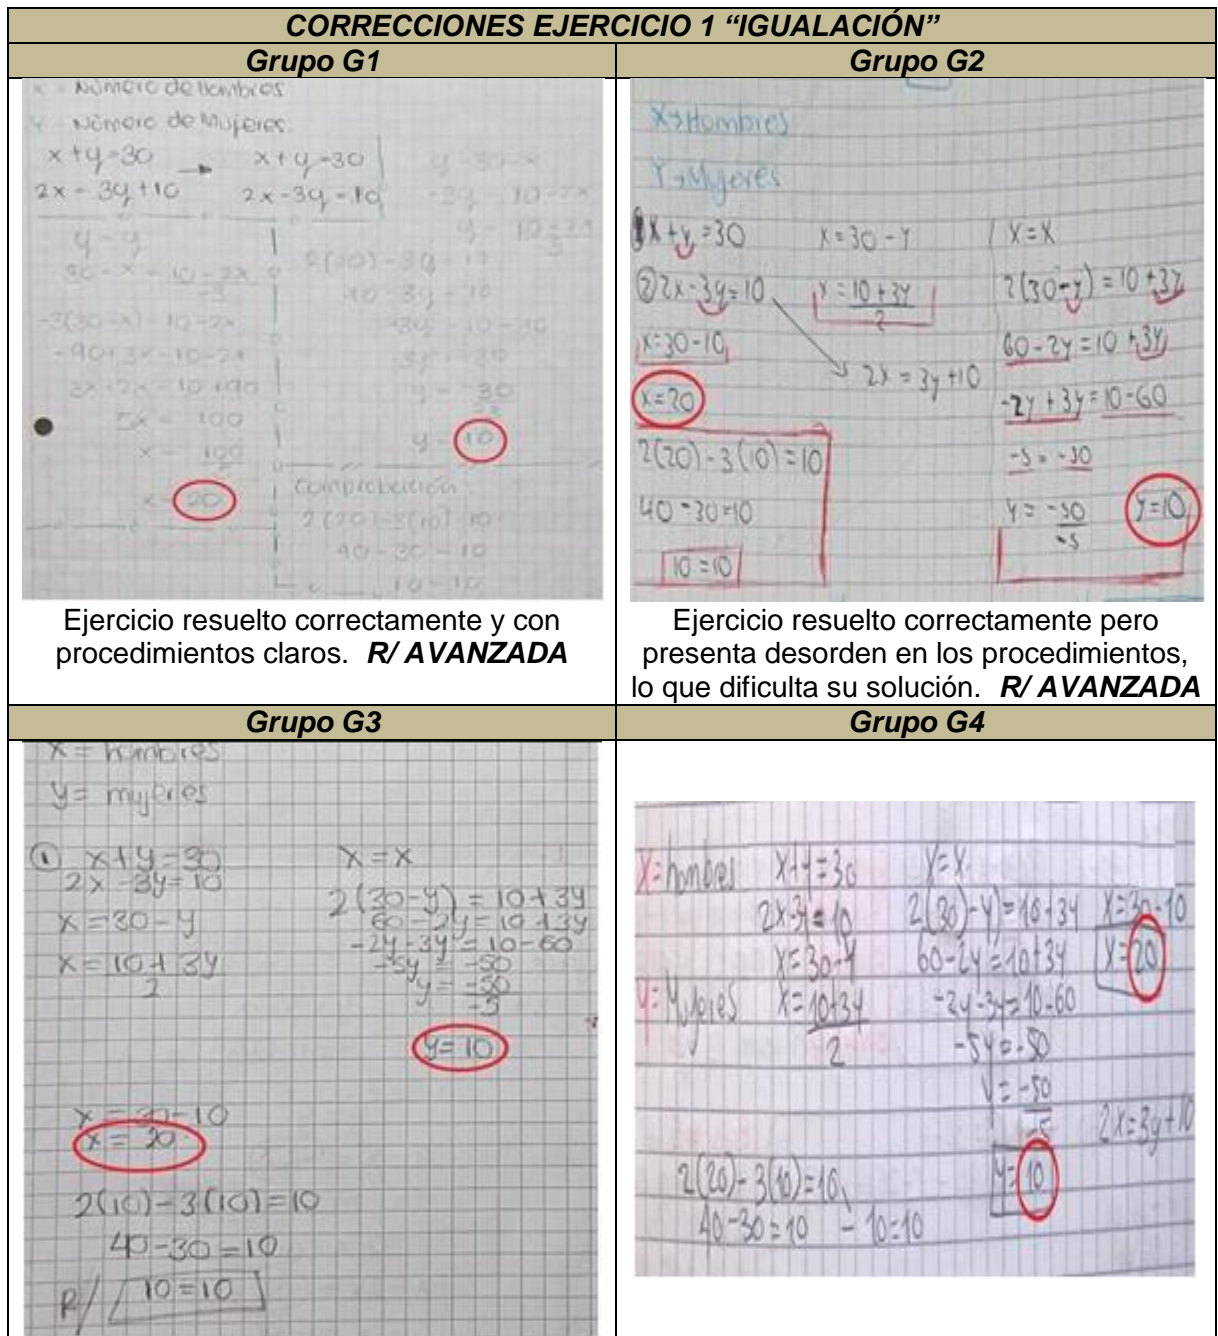 CORRECCIONES EJERCICIO 1 “IGUALACIÓN”
Grupo G1
x = Número de Hombres
Y = Número de Mujeres
x + y = 30
x + y = 30
2x = 3y + 10
2x - 3y = 10
y = 30 - x
-3y = 10 - 2x
y = 10 - 2x
-3
y = y
30 - x = 10 - 2x
-3
-3(30 - x) = 10 - 2x
-90 + 3x = 10 - 2x
3x + 2x = 10 + 90
5x = 100
x = 100
x = 20
2(20) - 3y = 10
40 - 3y = 10
-3y = 10 - 40
-3y = -30
y = -30
y = 10
comprobación
2(20) - 3(10) = 10
40 - 30 = 10
10 = 10
Ejercicio resuelto correctamente y con
procedimientos claros. R/ AVANZADA
Grupo G2
X→Hombres
Y→Mujeres
X + y = 30
② 2x - 3y = 10
x = 30 - 10
x = 20
2(20) - 3(10) = 10
40 - 30 = 10
10 = 10
X = 30 - Y
x = 10 + 3y
2
2x = 3y + 10
X = X
2(30 - y) = 10 + 3y
60 - 2y = 10 + 3y
-2y + 3y = 10 - 60
-5 = -50
y = -50
-5
y = 10
Ejercicio resuelto correctamente pero
presenta desorden en los procedimientos,
lo que dificulta su solución. R/ AVANZADA
Grupo G3
X = hombres
y = mujeres
① x + y = 30
2x - 3y = 10
x = 30 - y
x = 10 + 3y
2
X = X
2(30 - y) = 10 + 3y
60 - 2y = 10 + 3y
-2y - 3y = 10 - 60
-5y = -50
y = -50
-5
y = 10
x = 30 - 10
x = 20
2(10) - 3(10) = 10
40 - 30 = 10
R/ 10 = 10
Grupo G4
X = hombres
y = Mujeres
X + y = 30
2x - 3y = 10
x = 30 - y
x = 10 + 3y
2
X = X
2(30) - y) = 10 + 3y
60 - 2y = 10 + 3y
-2y - 3y = 10 - 60
-5y = -50
y = -50
-5
y = 10
X = 30 - 10
X = 20
2x = 3y + 10
2(20) - 3(10) = 10
40 - 30 = 10 - 10 = 10